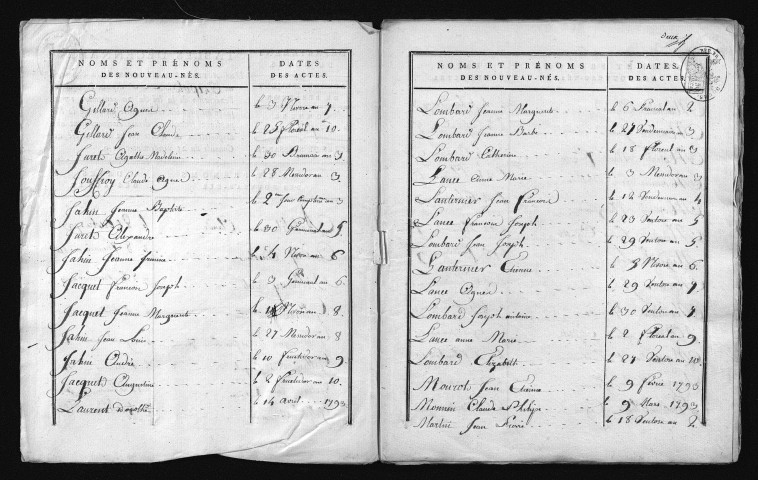 NOMS ET PRÉNOMS
DES NOUVEAU-NÉS.
DATES
DES ACTES.
Gillard Agnès le 3 Nivose an 7.
Gillard Jean Claude le 25 floréal an 10.
Juret Agathe Madelaine le 30 Brumair an 3
Jouffroy Claude Agnès le 28 Messidor an 3
Jahin Jeanne Baptiste le 2me Jour Compl. an 3
Juret Alexandre le 30 Germinal an 5
Jahin Jeanne le 24 Nivose an 6
Jacquet François Joseph le 3 Germinal an 6
Jacquet Jeanne Marguerite le Nivose an 8
Jahin Jean Louis le 27 Messidor an 8
Jahin André le 10 fructidor an 9
Jacquet Augustine le 2 fructidor an 10.
Laurent Dorothé le 14 avril 1793
deux
NOMS ET PRÉNOMS
DES NOUVEAU-NÉS.
DATES
DES ACTES.
Lombard Jeanne Marguerite le 6 Prairial an 2
Lombard Jeanne Barbe le 27 Vendemiair an 3
Lombard Catherine le 18 floréal an 3
Lance Anne Marie le 3 Messidor an 3
Lanternier Jean François le 12 Vendemiair an 4
Lance François Joseph le 23 Ventose an 5
Lombard Jean Joseph le 29 Ventose an 5
Lanternier Etienne le 3 Nivose an 6
Lance Agnès le 29 Ventose an 7
Lombard Joseph antoine le 30 Ventose an 7
Lance anne Marie le 2 floréal an 9
Lombard Elizabeth le 27 Ventose an 10
Mourot Jean Etienne le 9 Fevrie 1793
Monnin Claude Philippe le 9 Mars 1793
Martin Jean Pierre le 18 Ventose an 2